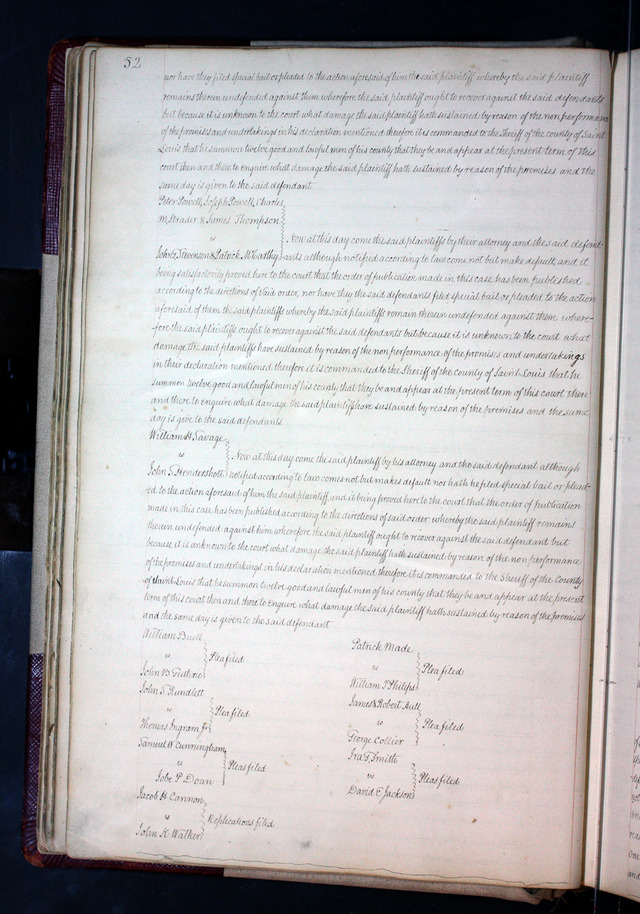 52
nor have they filed special bail or pleaded to the action aforesaid of him the said plaintiff whereby the said plaintiff
remains therein undefended against them wherefore the said plaintiff ought to recover against the said defendants
but because it is unknown to the court what damage the said plaintiff hath sustained by reason of the non performance
of the promises and undertakings in his declaration mentioned therefore it is commanded to the Sheriff of the county of Saint
Louis that he summon twelve good and lawful men of his county that they be and appear at the present term of this
court then and there to enquire what damage the said plaintiff hath sustained by reason of the premises and the
same day is given to the said defendant
Peter Powell, Joseph Powell, Charles
M. Strader & James Thompson
vs
Now at this day come the said plaintiffs by their attorney and the said defend-
John G. Stevenson & Patrick McCarthy
ants although notified according to law come not but make default, and it
being satisfactorily proved here to the court that the order of publication made in this case has been published
according to the directions of said order, nor have they the said defendants filed special bail or pleaded to the action
aforesaid of them the said plaintiffs whereby the said plaintiffs remain therein undefended against them where-
fore the said plaintiffs ought to recover against the said defendants but because it is unknown to the court what
damage the said plaintiffs have sustained by reason of the non performance of the promises and undertakings
in their declaration mentioned therefore it is commanded to the Sheriff of the county of Saint Louis that he
summon twelve good and lawful men of his county that they be and appear at the present term of this court then
and there to enquire what damage the said plaintiffs have sustained by reason of the premises and the same
day is give to the said defendants
William H. Savage
vs
Now at this day come the said plaintiff by his attorney and the said defendant although
John S. Hendershott
notified according to law comes not but makes default nor hath he filed special bail or plead-
ed to the action aforesaid of him the said plaintiff, and it being proved here to the court that the order of publication
made in this case has been published according to the directions of said order whereby the said plaintiff remains
therein undefended against him wherefore the said plaintiff ought to recover against the said defendant but
because it is unknown to the court what damage the said plaintiff hath sustained by reason of the non performance
of the promises and undertakings in his declaration mentioned therefore it is commanded to the Sheriff of the County
of Saint Louis that he summon twelve good and lawful men of his county that they be and appear at the present
term of this court then and there to enquire what damage the said plaintiff hath sustained by reason of the premises
and the same day is given to the said defendant
William Buell
vs
Plea filed
John B. Guthrie
John S. Rundlett
vs
Plea filed
Thomas Ingram Jr
Samuel W. Cunningham
vs
Pleas filed
Jobe P. Doan
Jacob H. Cannon
vs
Replications filed
John K. Walker
Patrick Made
vs
Plea filed
William T. Philips
James & Robert Aull
vs
Plea filed
George Collier
Ira T. Smith
vs
Pleas filed
David E. Jackson